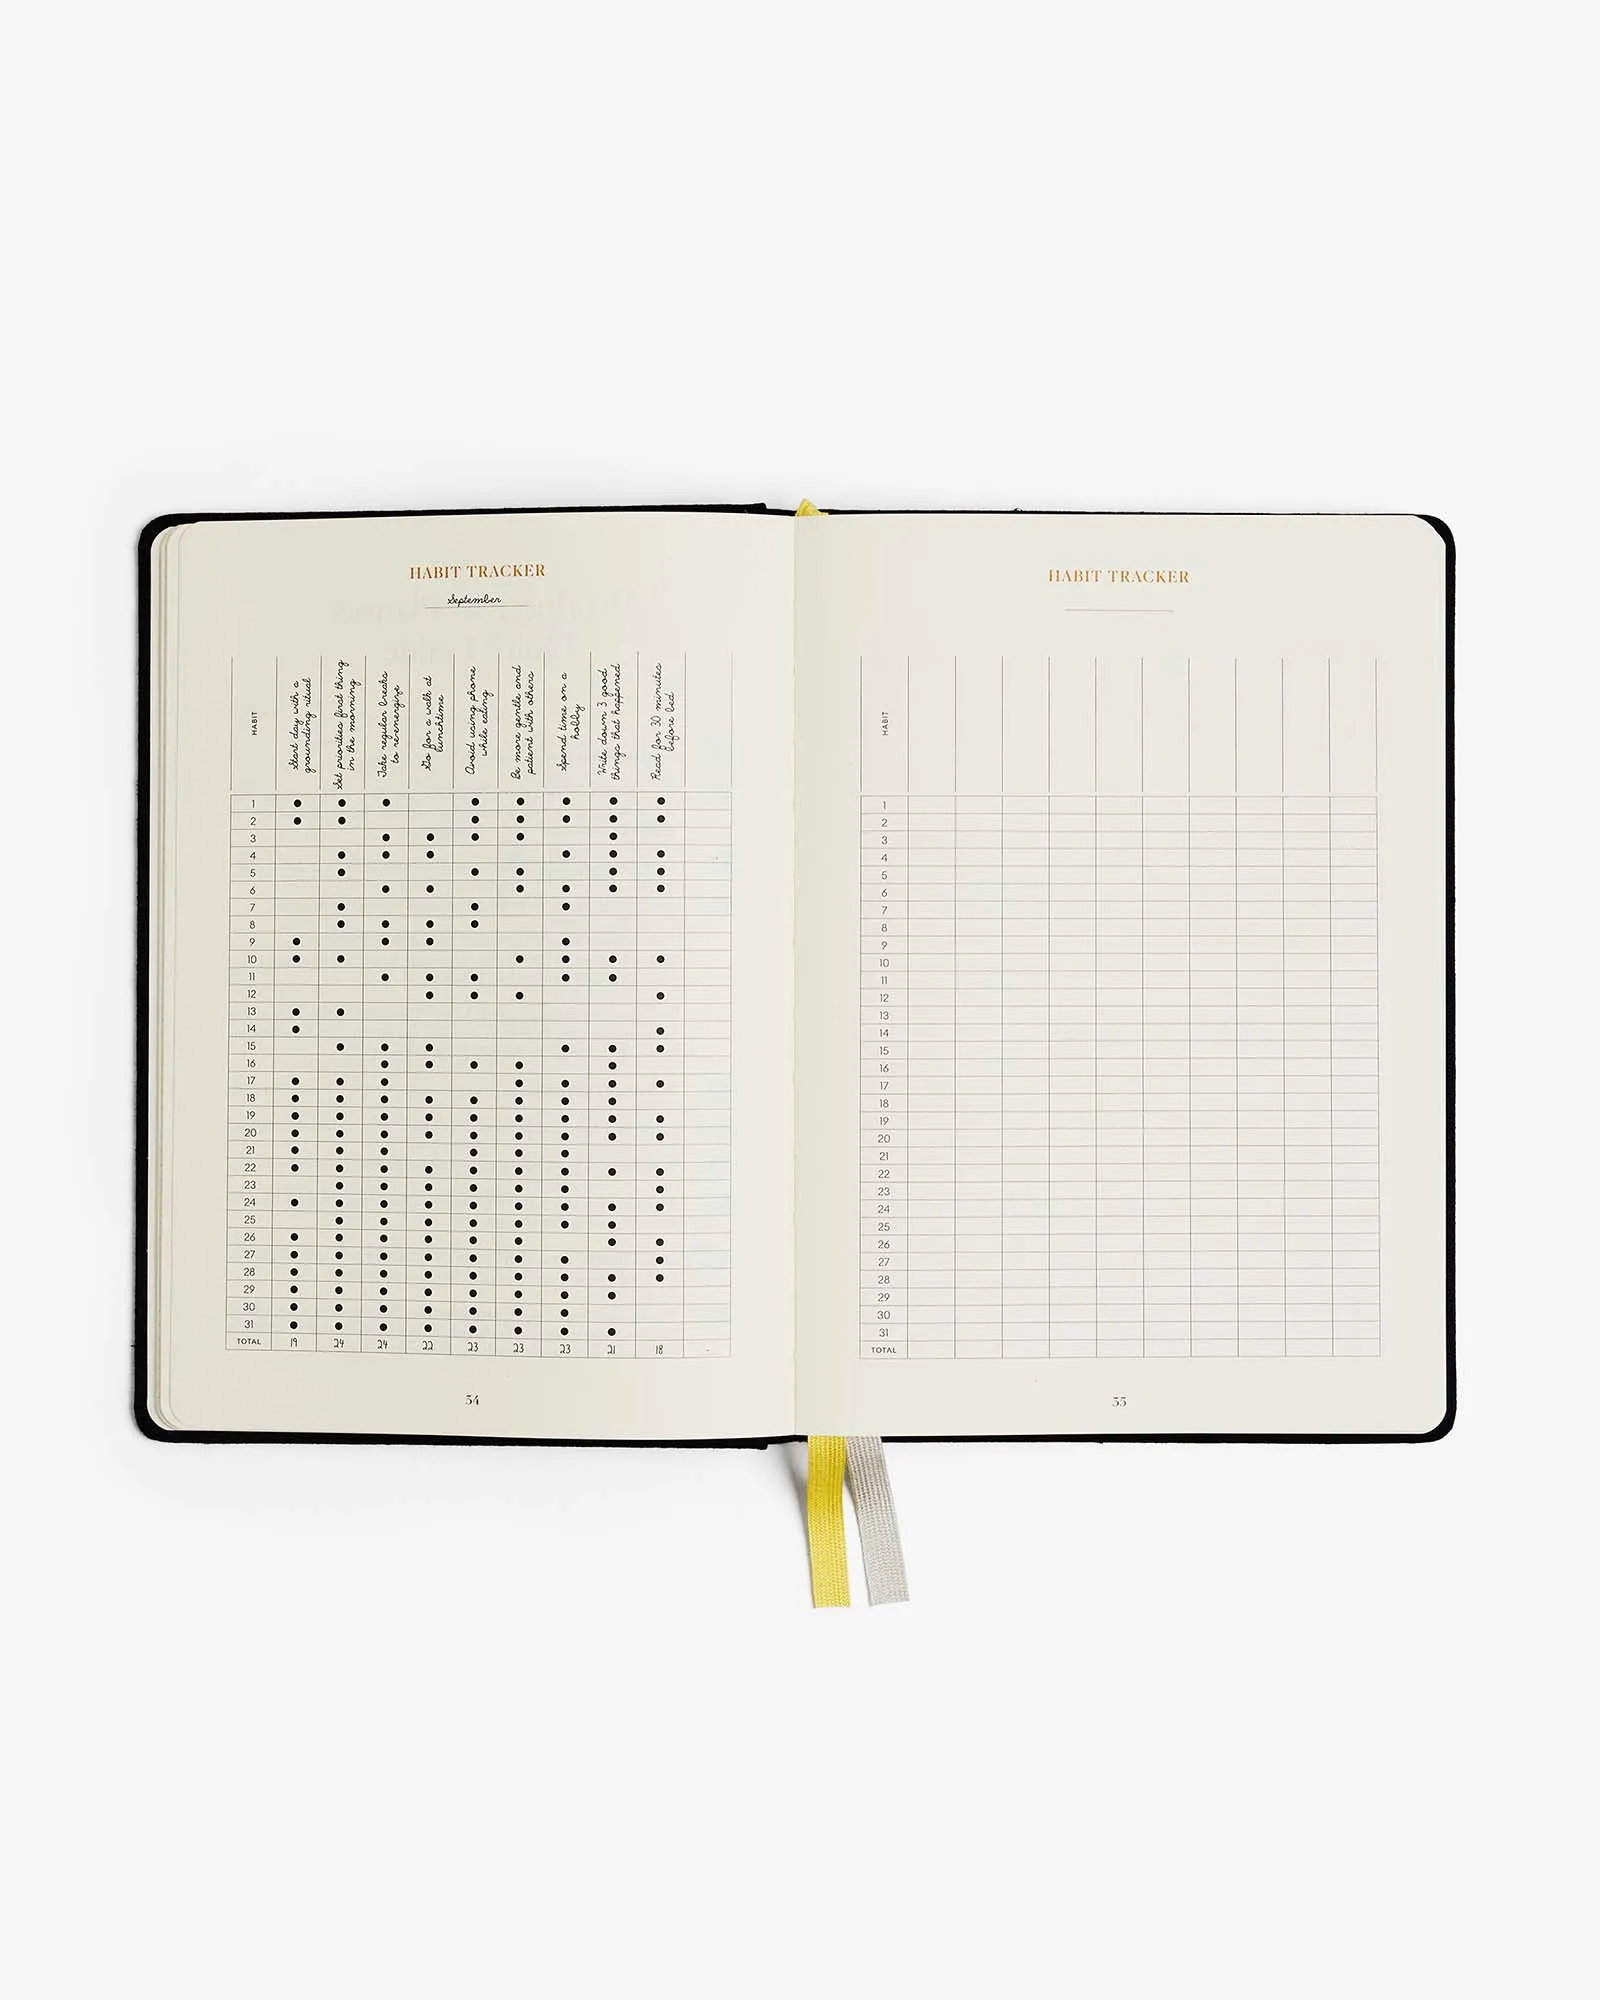 HABIT TRACKER
September
HABIT
Start day with a
grounding ritual
Set priorities first thing
in the morning
Take regular breaks
to reenergize
Go for a walk at
lunchtime
Avoid using phone
while eating
Be more gentle and
patient with others
Spend time on a
hobby
Write down 3 good
things that happened
Read for 30 minutes
before bed
1
2
3
4
5
6
7
8
9
10
11
12
13
14
15
16
17
18
19
20
21
22
23
24
25
26
27
28
29
30
31
TOTAL 19 24 24 22 23 23 23 21 18
54
HABIT TRACKER
HABIT
1
2
3
4
5
6
7
8
9
10
11
12
13
14
15
16
17
18
19
20
21
22
23
24
25
26
27
28
29
30
31
TOTAL
55